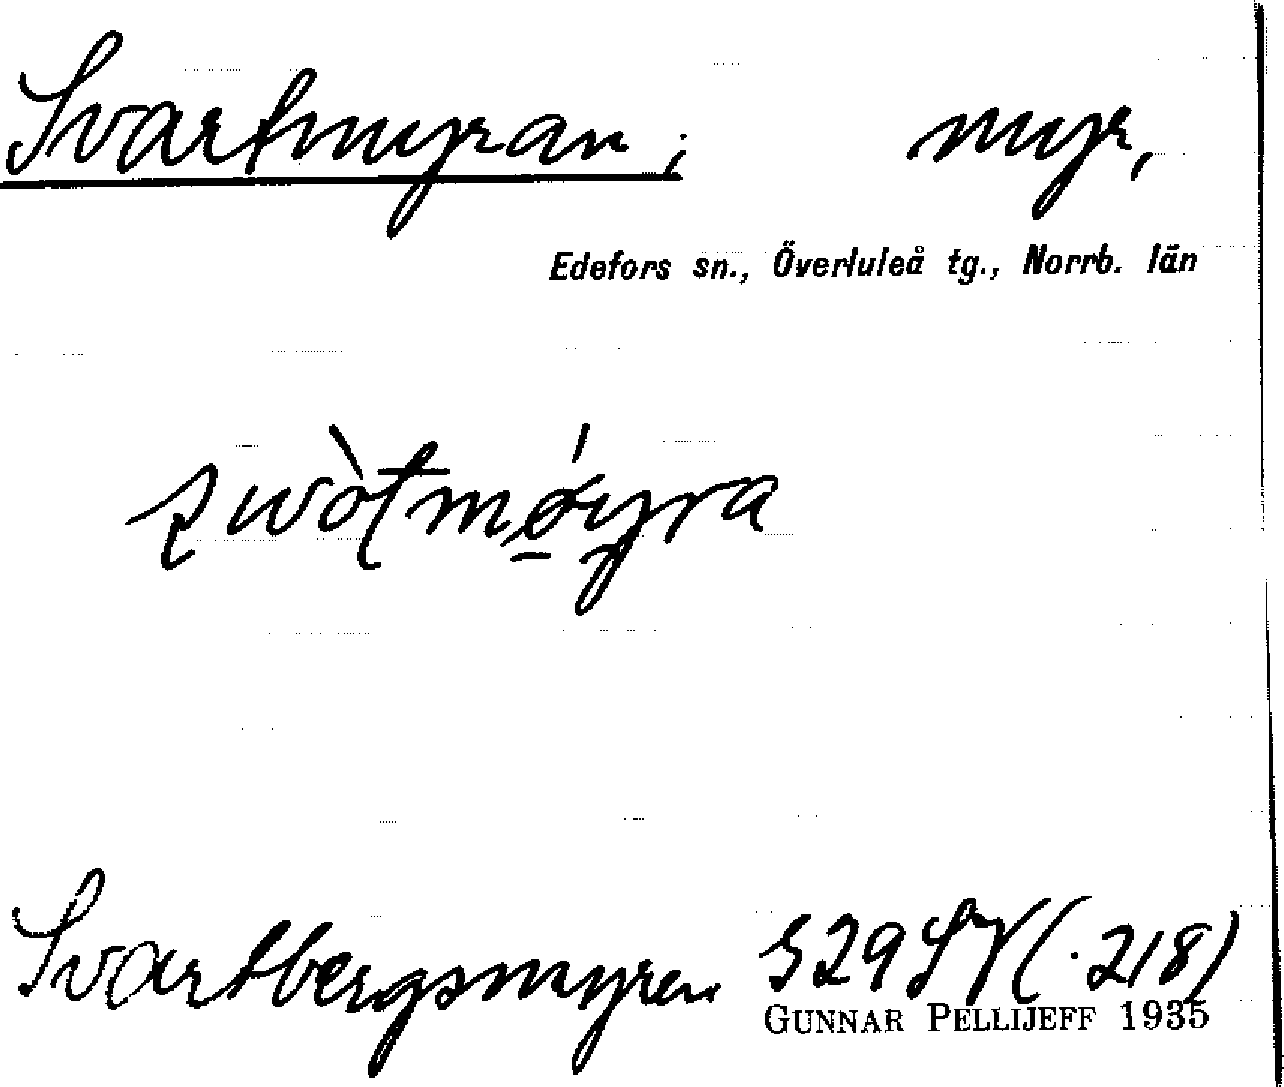 Svartmyran; myr,
Edefors sn., Överluleå tg., Norrb. län
Svartbergsmyren 529 (.218)
GUNNAR PELLIJEFF 1935